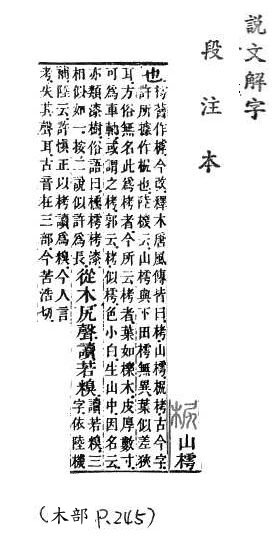 説文解字
段注本
㭒
山樗
也
樗舊作樗今改釋木唐風傳皆曰栲山樗㭒栲古今字
許所據作㭒也陸機云山樗與下田樗無異葉似差狹
耳方俗無名此爲栲者今所云栲者葉如櫟木皮厚數寸
可爲車軸或謂之栲郭云栲似樗色小白生山中因名云
亦類漆樹俗語曰櫄樗栲漆
相似如一按二說似許爲長
從木尻聲讀若糗
讀若糗三
字依陸機
補陸云許愼正以栲讀爲糗今人言
考失其聲耳古音在三部今苦浩切
(木部 P.245)